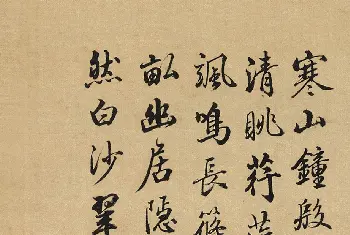 寒山鐘殷
清眺
颯鳴長
畝幽居隱
然白沙翠